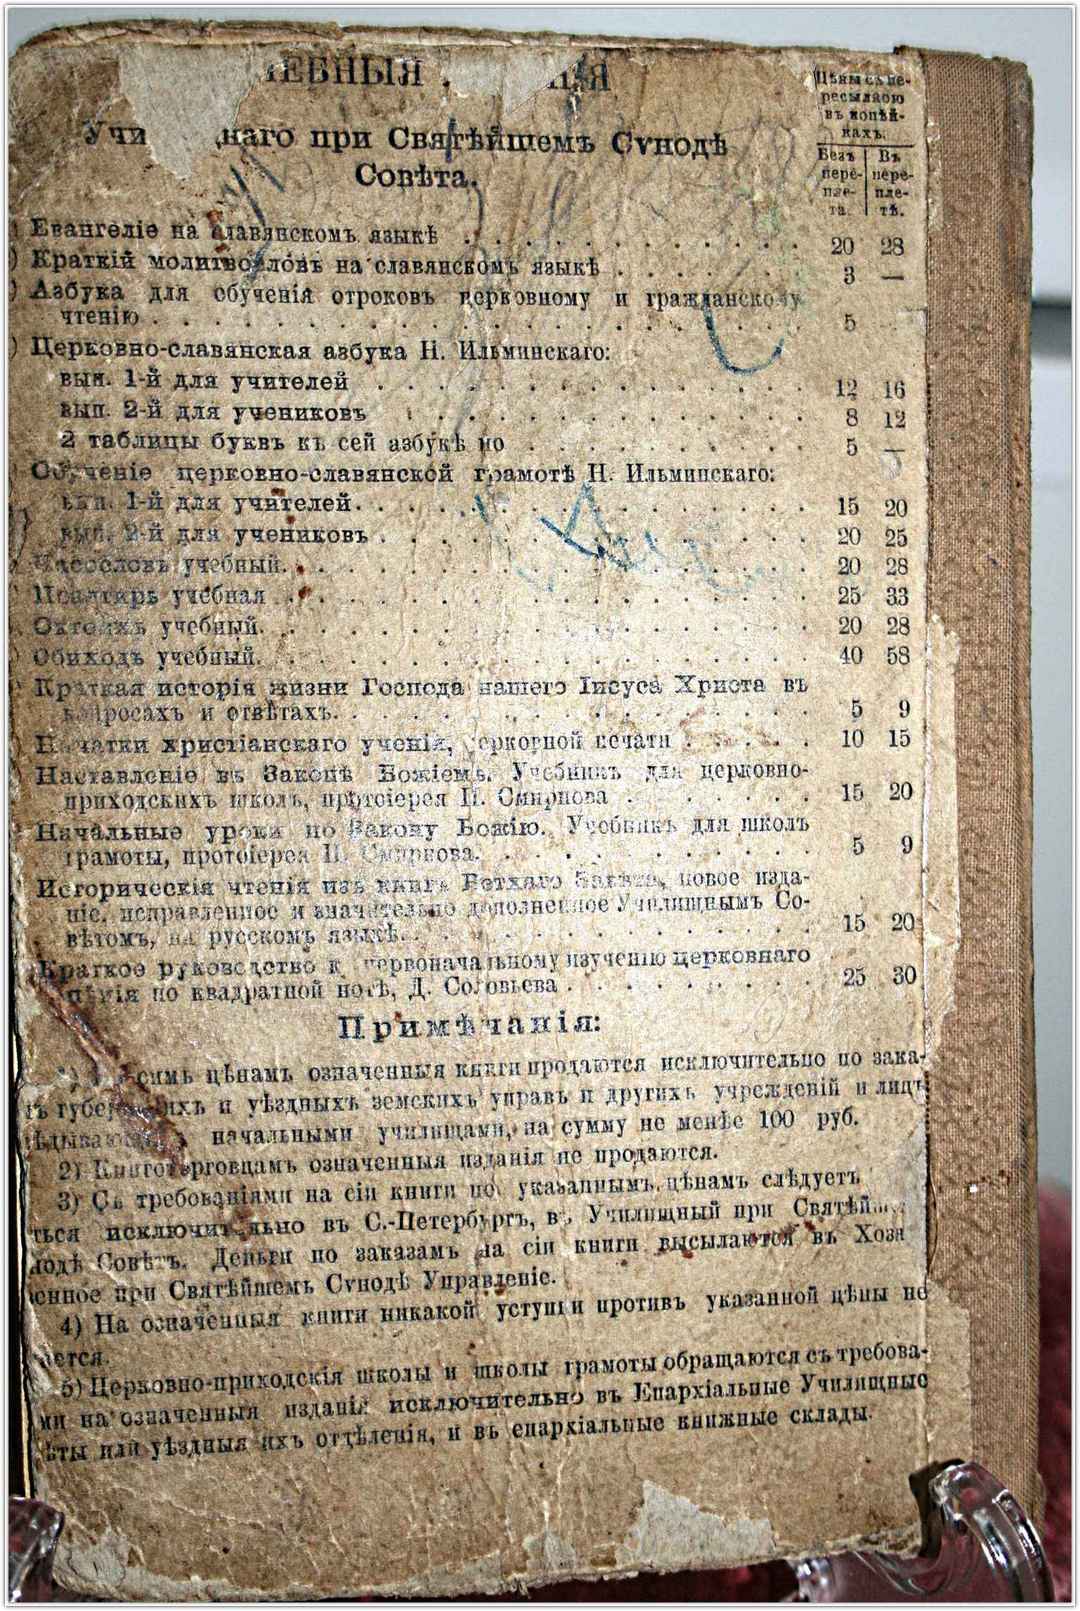 Цѣны съ пе-
ресылкою
въ копѣй-
кахъ.
Безъ пере-пле-та. Въ пере-пле-тѣ.
при Святѣйшемъ Сѵнодѣ
Совѣта.
Евангеліе на славянскомъ языкѣ . . . . 20 28
Краткій молитвословъ на славянскомъ языкѣ . . . . 3 —
Азбука для обученія отроковъ церковному и гражданскому
чтенію . . . . 5
Церковно-славянская азбука Н. Ильминскаго:
вып. 1-й для учителей . . . . 12 16
вып. 2-й для учениковъ . . . . 8 12
2 таблицы буквъ къ сей азбукѣ по . . . . 5 —
Обученіе церковно-славянской грамотѣ Н. Ильминскаго:
вып. 1-й для учителей . . . . 15 20
вып. 2-й для учениковъ . . . . 20 25
Часословъ учебный . . . . 20 28
Псалтирь учебная . . . . 25 33
Октоихъ учебный . . . . 20 28
Обиходъ учебный . . . . 40 58
Краткая исторія жизни Господа нашего Іисуса Христа въ
вопросахъ и отвѣтахъ . . . . 5 9
Начатки христіанскаго ученія, церковной печати . . . . 10 15
Наставленіе въ Законѣ Божіемъ. Учебникъ для церковно-
приходскихъ школъ, протоіерея П. Смирнова . . . . 15 20
Начальные уроки по Закону Божію. Учебникъ для школъ
грамоты, протоіерея П. Смирнова. . . . . 5 9
Историческія чтенія изъ книгъ Ветхаго Завѣта, новое изда-
ніе, исправленное и значительно дополненное Училищнымъ Со-
вѣтомъ, на русскомъ языкѣ . . . . 15 20
Краткое руководство къ первоначальному изученію церковнаго
пѣнія по квадратной нотѣ, Д. Соловьева . . . . 25 30
Примѣчанія:
симъ цѣнамъ означенныя книги продаются исключительно по зака-
и уѣздныхъ земскихъ управъ и другихъ учрежденій и лицъ
начальными училищами, на сумму не менѣе 100 руб.
2) Книготорговцамъ означенныя изданія не продаются.
3) Съ требованіями на сіи книги по указаннымъ цѣнамъ слѣдуетъ
ться исключительно въ С.-Петербургъ, въ Училищный при Святѣйш
нодѣ Совѣтъ. Деньги по заказамъ на сіи книги высылаются въ Хозя
енное при Святѣйшемъ Сѵнодѣ Управленіе.
4) На означенныя книги никакой уступки противъ указанной цѣны не
ается.
5) Церковно-приходскія школы и школы грамоты обращаются съ требова-
ми на означенныя изданія исключительно въ Епархіальные Училищные
ѣты или уѣздныя ихъ отдѣленія, и въ епархіальные книжные склады.